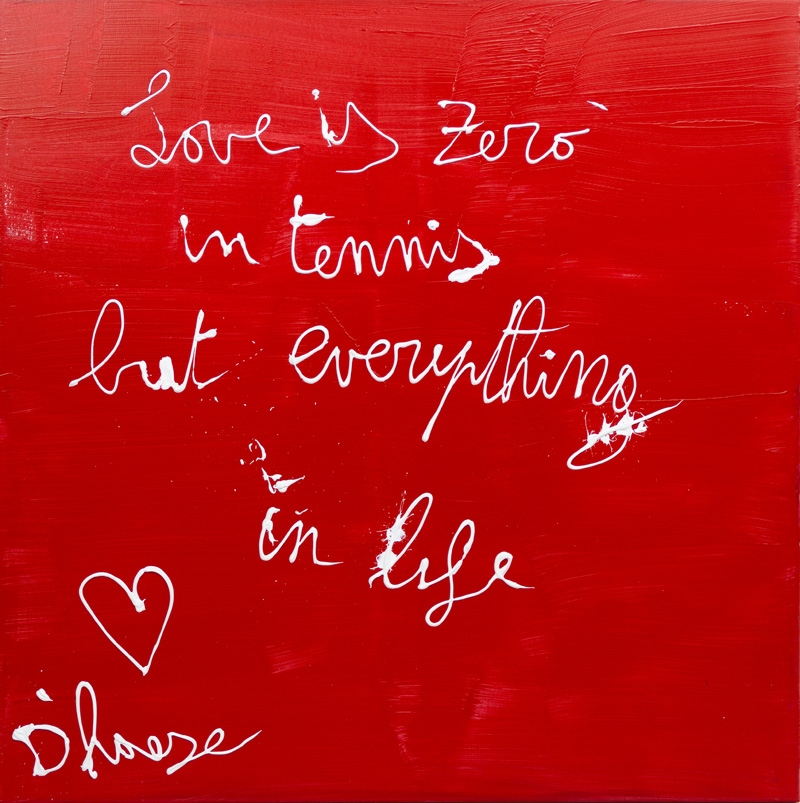 Love is Zero
in tennis
but everything
in life
D'haese